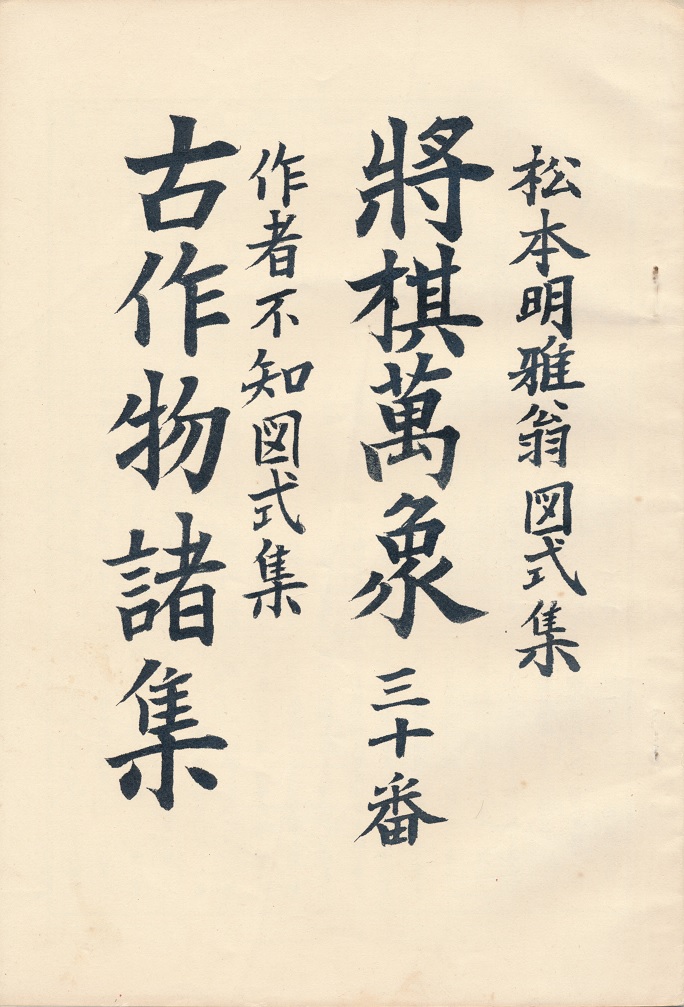 松本明雅翁図式集
將棋萬象 三十番
作者不知図式集
古作物諸集